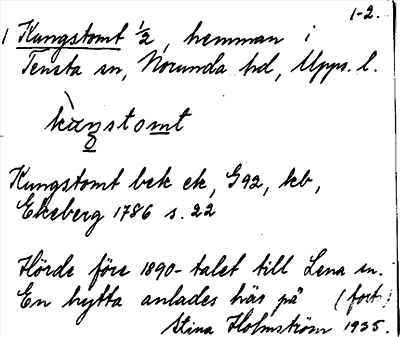 1-2.
1 Kungstomt 1/2, hemman i
Tensta sn, Norunda hd, Upps. l.
kàŋstomt
Kungstomt bek ek, G92, kb,
Ekeberg 1786 s. 22
Hörde före 1890-talet till Lena sn.
En hytta anlades här på (forts.)
Stina Holmström 1935.